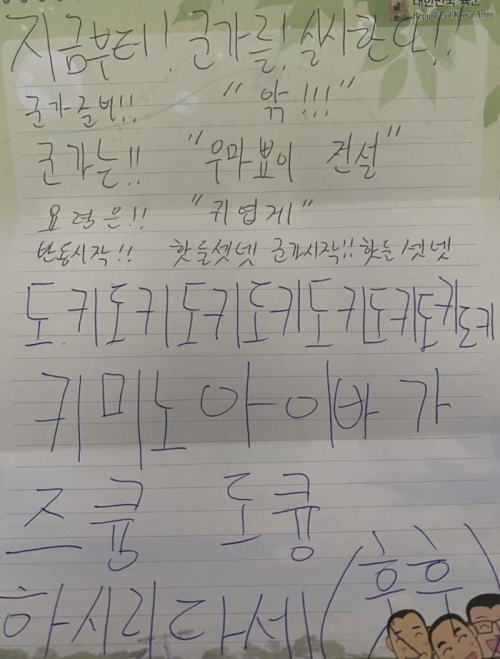 대한민국 육군
Republic of Korea Army
지금부터! 군가를! 실시한다!!
군가준비!! "악!!!"
군가는!! "우마뾰이 전설"
요령은!! "귀엽게"
반동시작!! 핫둘셋넷 군가시작!! 핫둘셋넷
도.키도키도키도키도키도키도키도키
키미노아이바가
즈큥 도큥
하시리다세(후후)